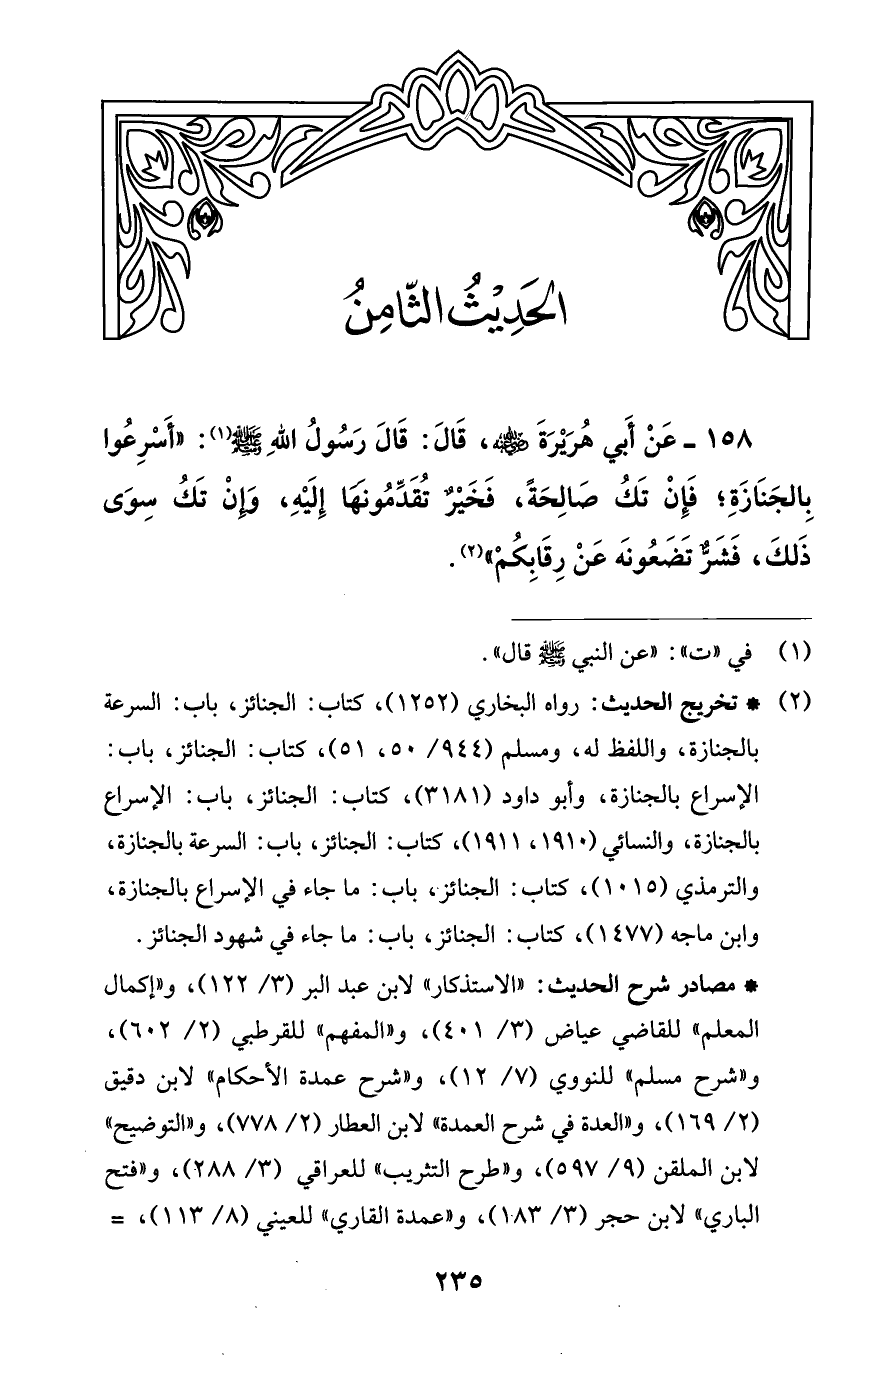 الحَدِيْثُ الثَّامِنُ
١٥٨ - عَنْ أَبي هُرَيْرَةَ رضي الله عنه، قَالَ: قَالَ رَسُولُ اللهِ ﷺ(١): «أَسْرِعُوا
بِالجَنَازَةِ؛ فَإِنْ تَكُ صَالِحَةً، فَخَيْرٌ تُقَدِّمُونَهَا إِلَيْهِ، وَإِنْ تَكُ سِوَى
ذَلكَ، فَشَرٌّ تَضَعُونَه عَنْ رِقَابِكُمْ»(٢).
(١) في «ت»: «عن النبي ﷺ قال».
(٢) * تخريج الحديث: رواه البخاري (١٢٥٢)، كتاب: الجنائز، باب: السرعة
بالجنازة، واللفظ له، ومسلم (٩٤٤/ ٥٠، ٥١)، كتاب: الجنائز، باب:
الإسراع بالجنازة، وأبو داود (٣١٨١)، كتاب: الجنائز، باب: الإسراع
بالجنازة، والنسائي (١٩١٠، ١٩١١)، كتاب: الجنائز، باب: السرعة بالجنازة،
والترمذي (١٠١٥)، كتاب: الجنائز، باب: ما جاء في الإسراع بالجنازة،
وابن ماجه (١٤٧٧)، كتاب: الجنائز، باب: ما جاء في شهود الجنائز.
* مصادر شرح الحديث: «الاستذكار» لابن عبد البر (٣/ ١٢٢)، و«إكمال
المعلم» للقاضي عياض (٣/ ٤٠١)، و«المفهم» للقرطبي (٢/ ٦٠٢)،
و«شرح مسلم» للنووي (٧/ ١٢)، و«شرح عمدة الأحكام» لابن دقيق
(٢/ ١٦٩)، و«العدة في شرح العمدة» لابن العطار (٢/ ٧٧٨)، و«التوضيح»
لابن الملقن (٩/ ٥٩٧)، و«طرح التثريب» للعراقي (٣/ ٢٨٨)، و«فتح
الباري» لابن حجر (٣/ ١٨٣)، و«عمدة القاري» للعيني (٨/ ١١٣)، =
٢٣٥